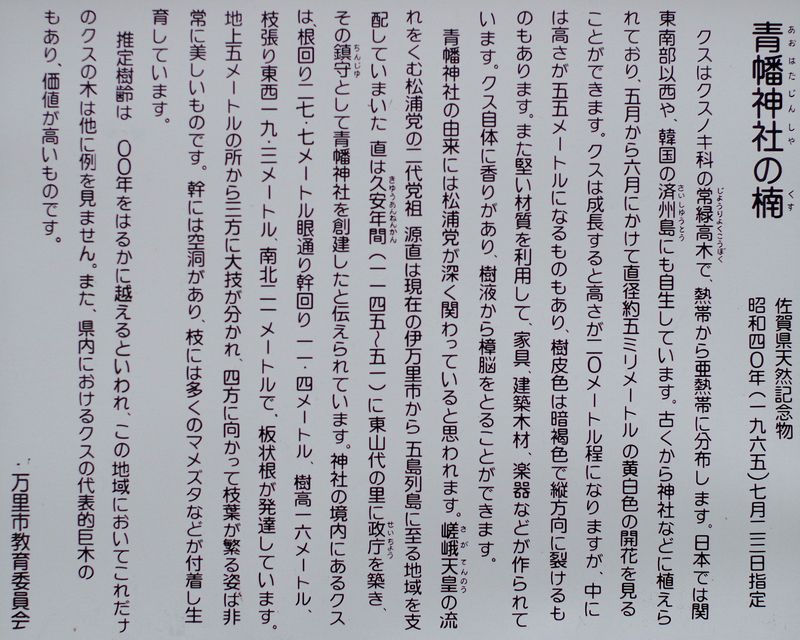 青幡神社の楠
あおはたじんしや
くす
佐賀県天然記念物
昭和四〇年(一九六五)七月二三日指定
クスはクスノキ科の常緑高木で、熱帯から亜熱帯に分布します。日本では関
じようりよくこうぼく
東南部以西や、韓国の済州島にも自生しています。古くから神社などに植えら
さいしゆうとう
れており、五月から六月にかけて直径約五ミリメートルの黄白色の開花を見る
ことができます。クスは成長すると高さが二〇メートル程になりますが、中に
は高さが五五メートルになるものもあり、樹皮色は暗褐色で縦方向に裂けるも
のもあります。また堅い材質を利用して、家具、建築木材、楽器などが作られて
います。クス自体に香りがあり、樹液から樟脳をとることができます。
青幡神社の由来には松浦党が深く関わっていると思われます。嵯峨天皇の流
さがてんのう
れをくむ松浦党の二代党祖 源直は現在の伊万里市から五島列島に至る地域を支
配していまいた 直は久安年間(一一四五〜五一)に東山代の里に政庁を築き、
きゆうあんねんかん
せいちよう
その鎮守として青幡神社を創建したと伝えられています。神社の境内にあるクス
ちんじゆ
は、根回り二七・七メートル眼通り幹回り一一・四メートル、樹高一六メートル、
枝張り東西一九・三メートル、南北二一メートルで、板状根が発達しています。
地上五メートルの所から三方に大技が分かれ、四方に向かって枝葉が繁る姿は非
常に美しいものです。幹には空洞があり、枝には多くのマメズタなどが付着し生
育しています。
推定樹齢は 〇〇年をはるかに越えるといわれ、この地域においてこれだけ
のクスの木は他に例を見ません。また、県内におけるクスの代表的巨木の
もあり、価値が高いものです。
万里市教育委員会